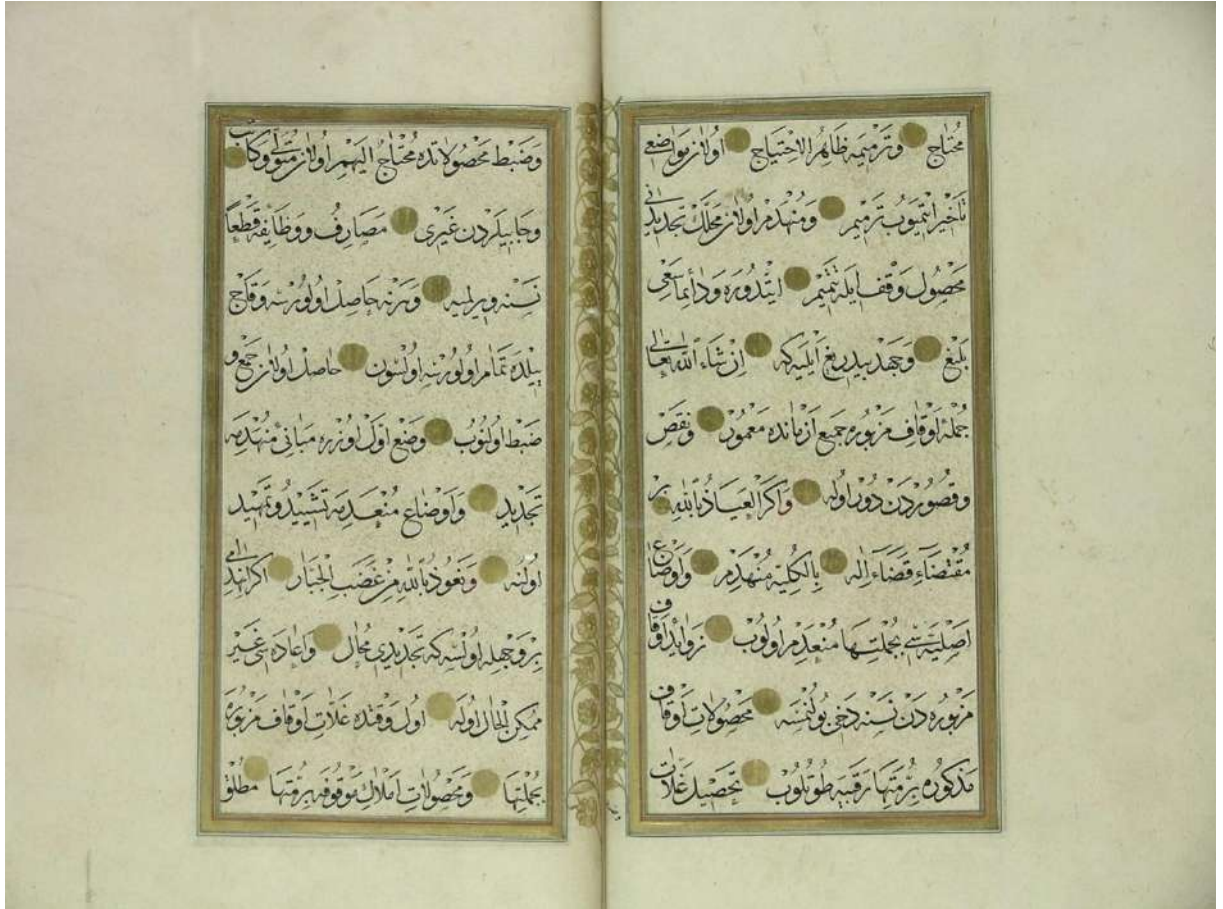 محتاج وترميمه ظاهر الاحتياج اولان مواضعی
تأخير ايتميوب ترميم ومنهدم اولان محللك تجديدانی
محصول وقف ايله تتميم ايتدوره ودائما سعی
بليغ وجهد بيدريغ ايليه كه ان شاء الله تعالى
جمله اوقاف مزبوره جميع ازمانده معمور ونقص
وقصوردن دور اوله واكر العياذ بالله بر
مقتضاء قضاء اله بالكليه منهدم واوضاع
اصليه سی بجملتها منعدم اولوب زوائد اوقاف
مزبوره دن نسنه دخی بولنمسه محصولات اوقاف
مذكوره برمتها رقبه طوتلوب تحصيل غلات
وضبط محصولاتده محتاج اليهم اولان متولی وكاتب
وجابيلردن غيری مصارف ووظائفه قطعا
نسنه ويرلميه ونه حاصل اولورسه وقاچ
ييلده تمام اولورسه اولسون حاصل اولان جمع و
ضبط اولنوب وضع اول اوزره مبانئ منهدمه
تجديد واوضاع منعدمه تشييد وتمهيد
اولنه ونعوذ بالله من غضب الجبار اكر انهدامی
بر وجهله اولسه كه تجديدی محال واعاده سی غير
ممكن الحال اوله اول وقتده غلات اوقاف مزبوره
بجملتها ومحصولات املاك موقوفه برمتها مطلقا